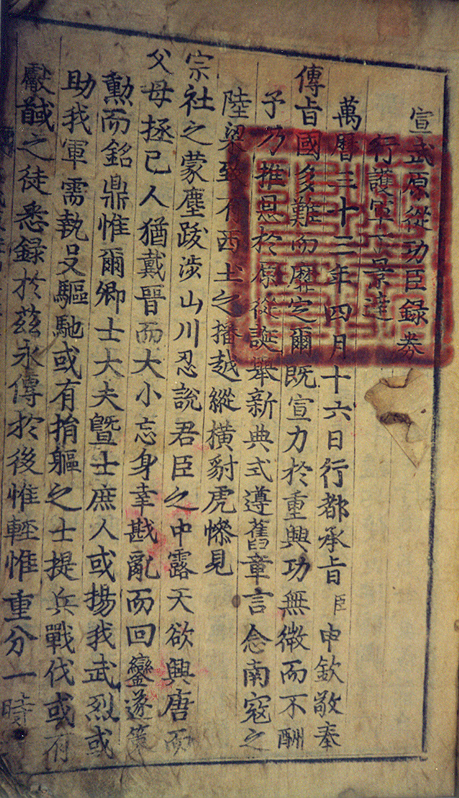 宣武原從功臣錄券
行護軍丁景達
萬曆三十二年四月十六日行都承旨臣申欽敬奉
傳旨國多難而歷定爾既宣力於重興功無微而不酬
予乃推恩於原從誕擧新典式遵舊章言念南寇之
陸梁致有西土之播越縱橫豺虎慘見
宗社之蒙塵跋涉山川忍說君臣之中露天欲興唐而
父母拯己人猶戴晉而大小忘身幸戡亂而回鑾遂策
勳而銘鼎惟爾卿士大夫曁士庶人或揚我武烈或
助我軍需執殳驅馳或有捐軀之士提兵戰伐或有
獻馘之徒悉錄於玆永傳於後惟輕惟重分一時